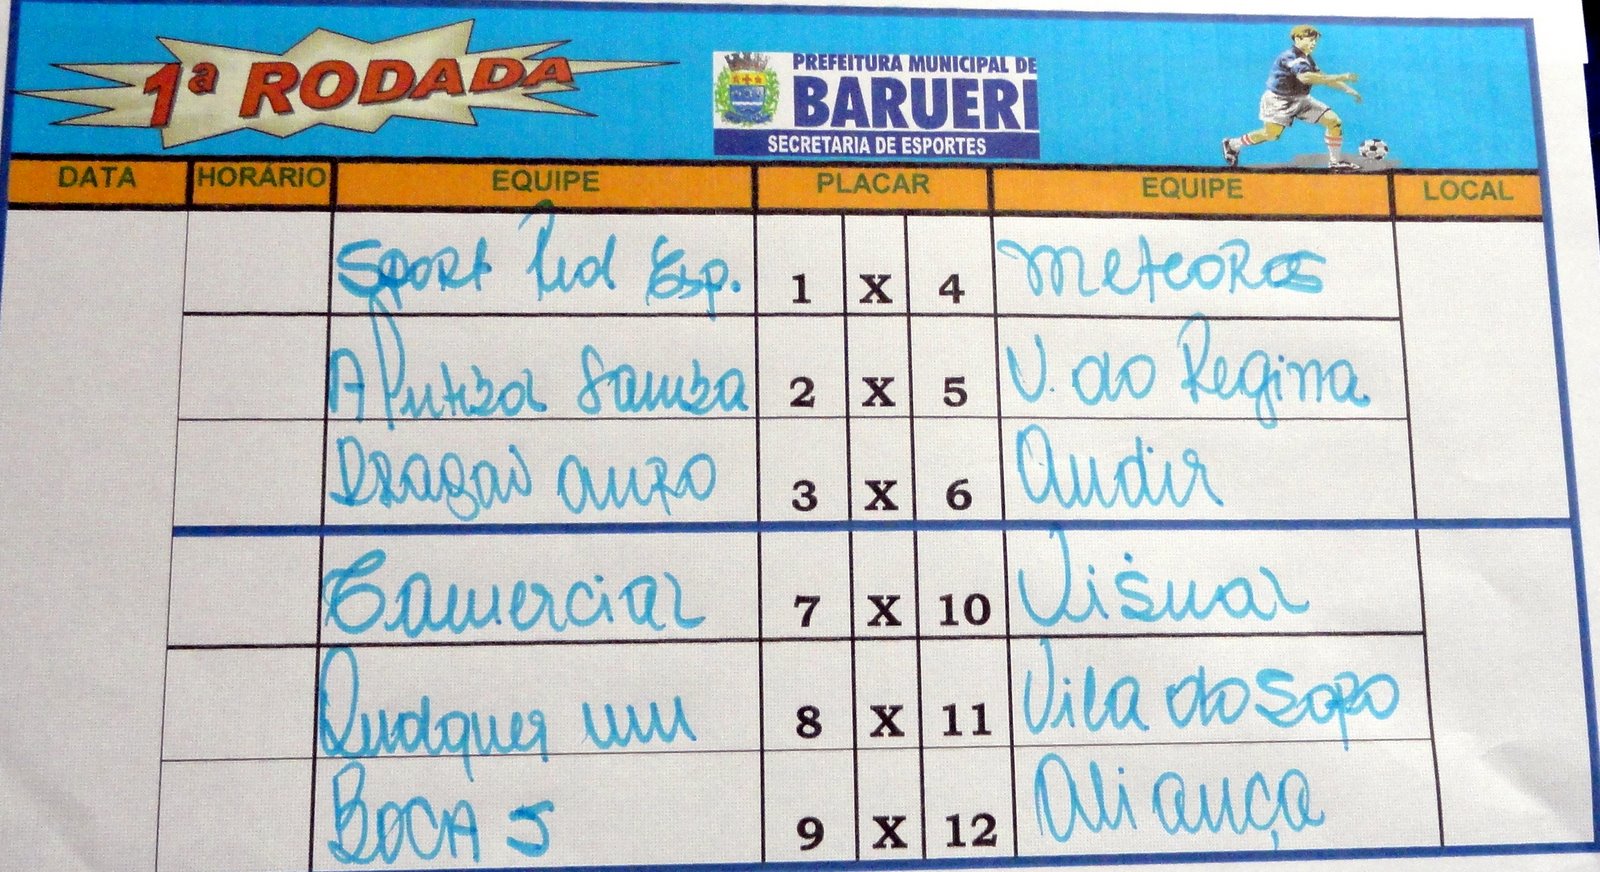 1ª RODADA
PREFEITURA MUNICIPAL DE
BARUERI
SECRETARIA DE ESPORTES
DATA HORÁRIO EQUIPE PLACAR EQUIPE LOCAL
SPORT Esp. 1 X 4 METEOROS
A Samba 2 X 5 V. do Regina
DRAGAO OURO 3 X 6 Audir
Comercial 7 X 10 Visual
Qualquer um 8 X 11 Vila do Sapo
BOCA J 9 X 12 Aliança